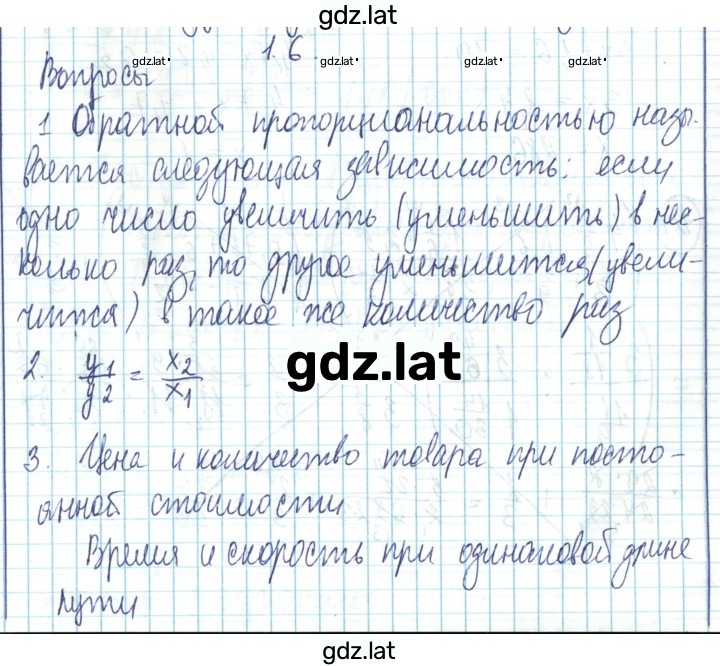 gdz.lat
1.6.
gdz.lat gdz.lat gdz.lat gdz.lat
Вопросы
1 Обратной пропорциональностью назы-
вается следующая зависимость: если
одно число увеличить (уменьшить) в нес-
колько раз, то другое уменьшится (увели-
чится) в такое же количество раз
2. y1/y2 = x2/x1
gdz.lat
3. Цена и количество товара при посто-
янной стоимости
Время и скорость при одинаковой длине
пути
gdz.lat